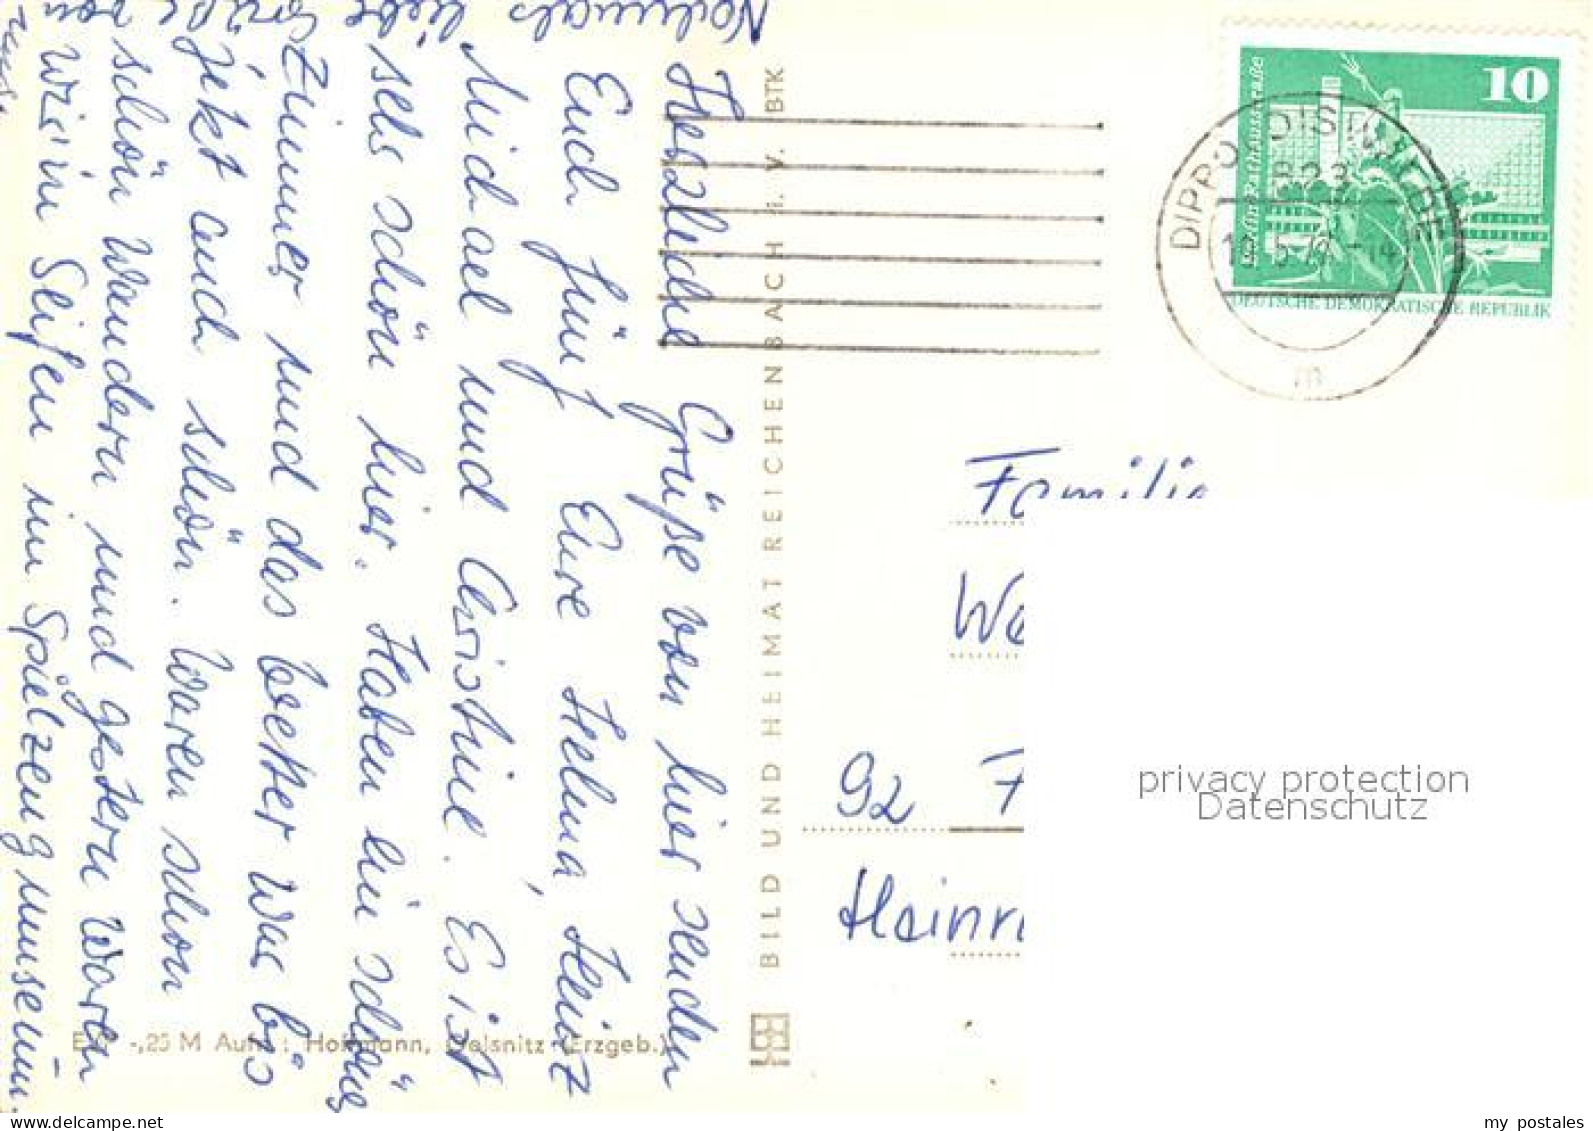 Herzliche Grüße von hier senden
Euch fünf Eure Helma, Heinz
Michael und Christine. Es ist
sehr schön hier. Haben ein schönes
Zimmer und das Wetter war bis
jetzt auch schön. Waren schon
schön Wandern und gestern waren
wir in Seifen im Spielzeugmuseum.
Nochmals liebe Grüße von
BILD UND HEIMAT REICHENBACH i. V. BTK
-,25 M Aufn.: Hoffmann, Oelsnitz (Erzgeb.)
10
Berlin Rathausstraße
DEUTSCHE DEMOKRATISCHE REPUBLIK
DIPPOLDISWALDE
823
m
Familie
92
privacy protection
Datenschutz
my postales